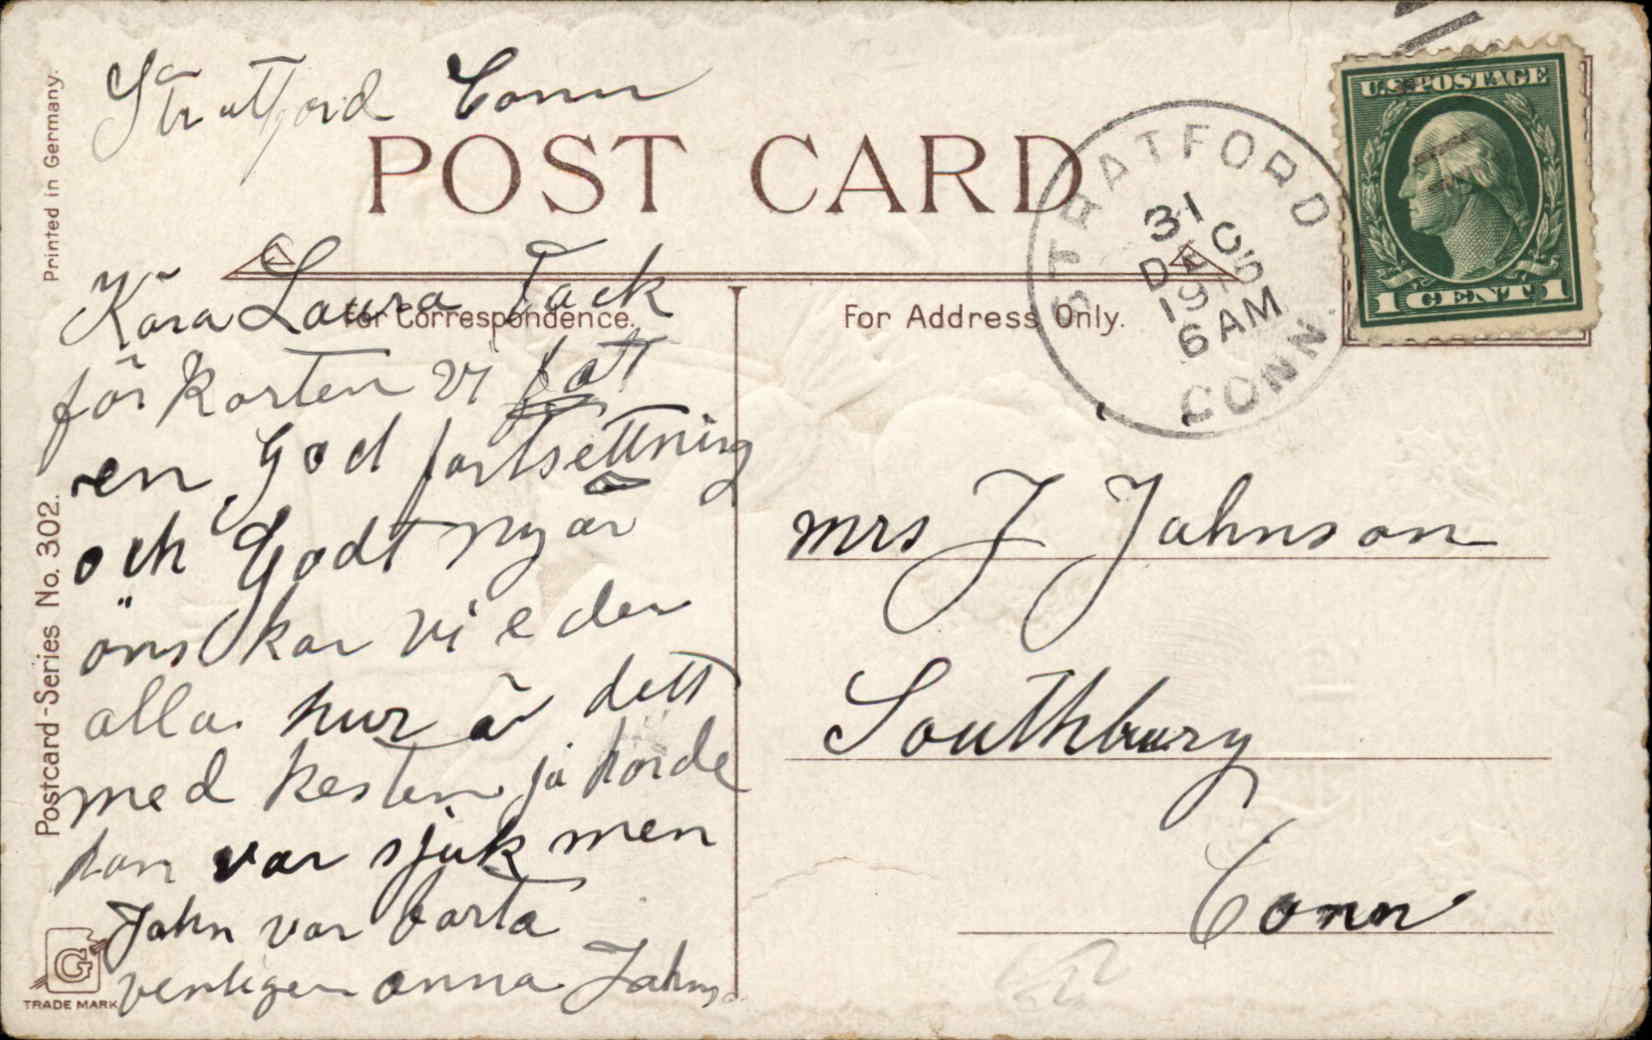 Stratford Conn
POST CARD
For Correspondence.
For Address Only.
Printed in Germany.
Postcard-Series No. 302.
G
TRADE MARK
STRATFORD
31
DEC
6 AM
CONN.
U.S. POSTAGE
1 CENT 1
Kära Laura Tack
för korten vi fatt
en God fortsettning
och Godt nyår
önskar vi eder
alla. hur är dett
med kesten ja hörde
han var sjuk men
John var borta
venligen anna
mrs J Johnson
Southbury
Conn